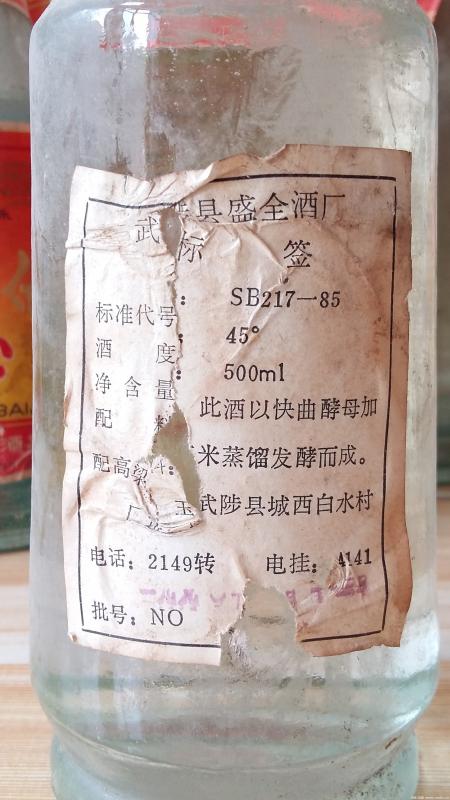 武陟县盛全酒厂
标 签
标准代号: SB217—85
酒 度: 45°
净含量: 500ml
配 料 此酒以快曲酵母加
配高粱 米蒸馏发酵而成。
厂 玉 武陟县城西白水村
电话: 2149转 电挂: 4141
批号: NO